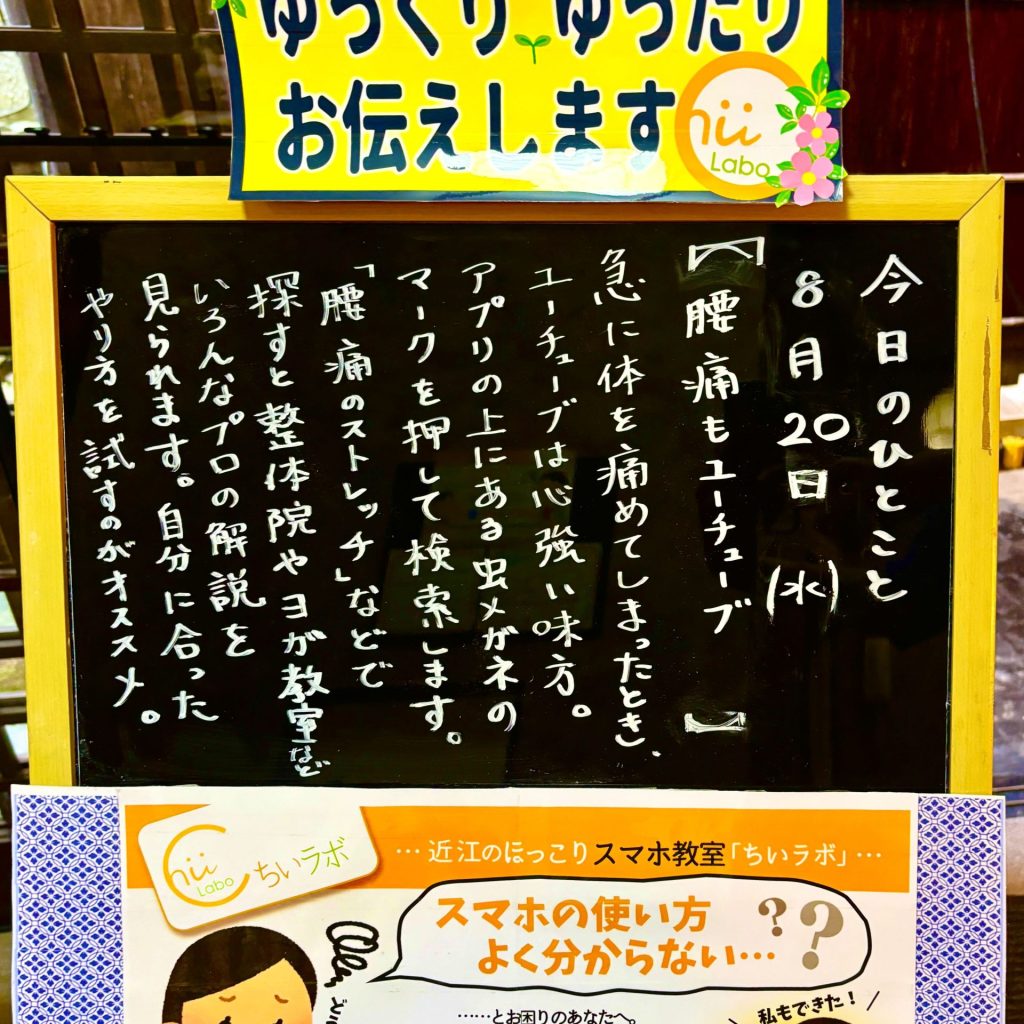 ゆっくり ゆったり
お伝えします
hii
Labo
今日のひとこと
8月20日(水)
【腰痛もユーチューブ】
急に体を痛めてしまったとき、
ユーチューブは心強い味方。
アプリの上にある虫メガネの
マークを押して検索します。
「腰痛のストレッチ」などで
探すと整体院やヨガ教室など
いろんなプロの解説を
見られます。自分に合った
やり方を試すのがオススメ。
Chii
Labo
ちいラボ
…近江のほっこりスマホ教室「ちいラボ」…
スマホの使い方
よく分からない…??
……とお困りのあなたへ。
私もできた!